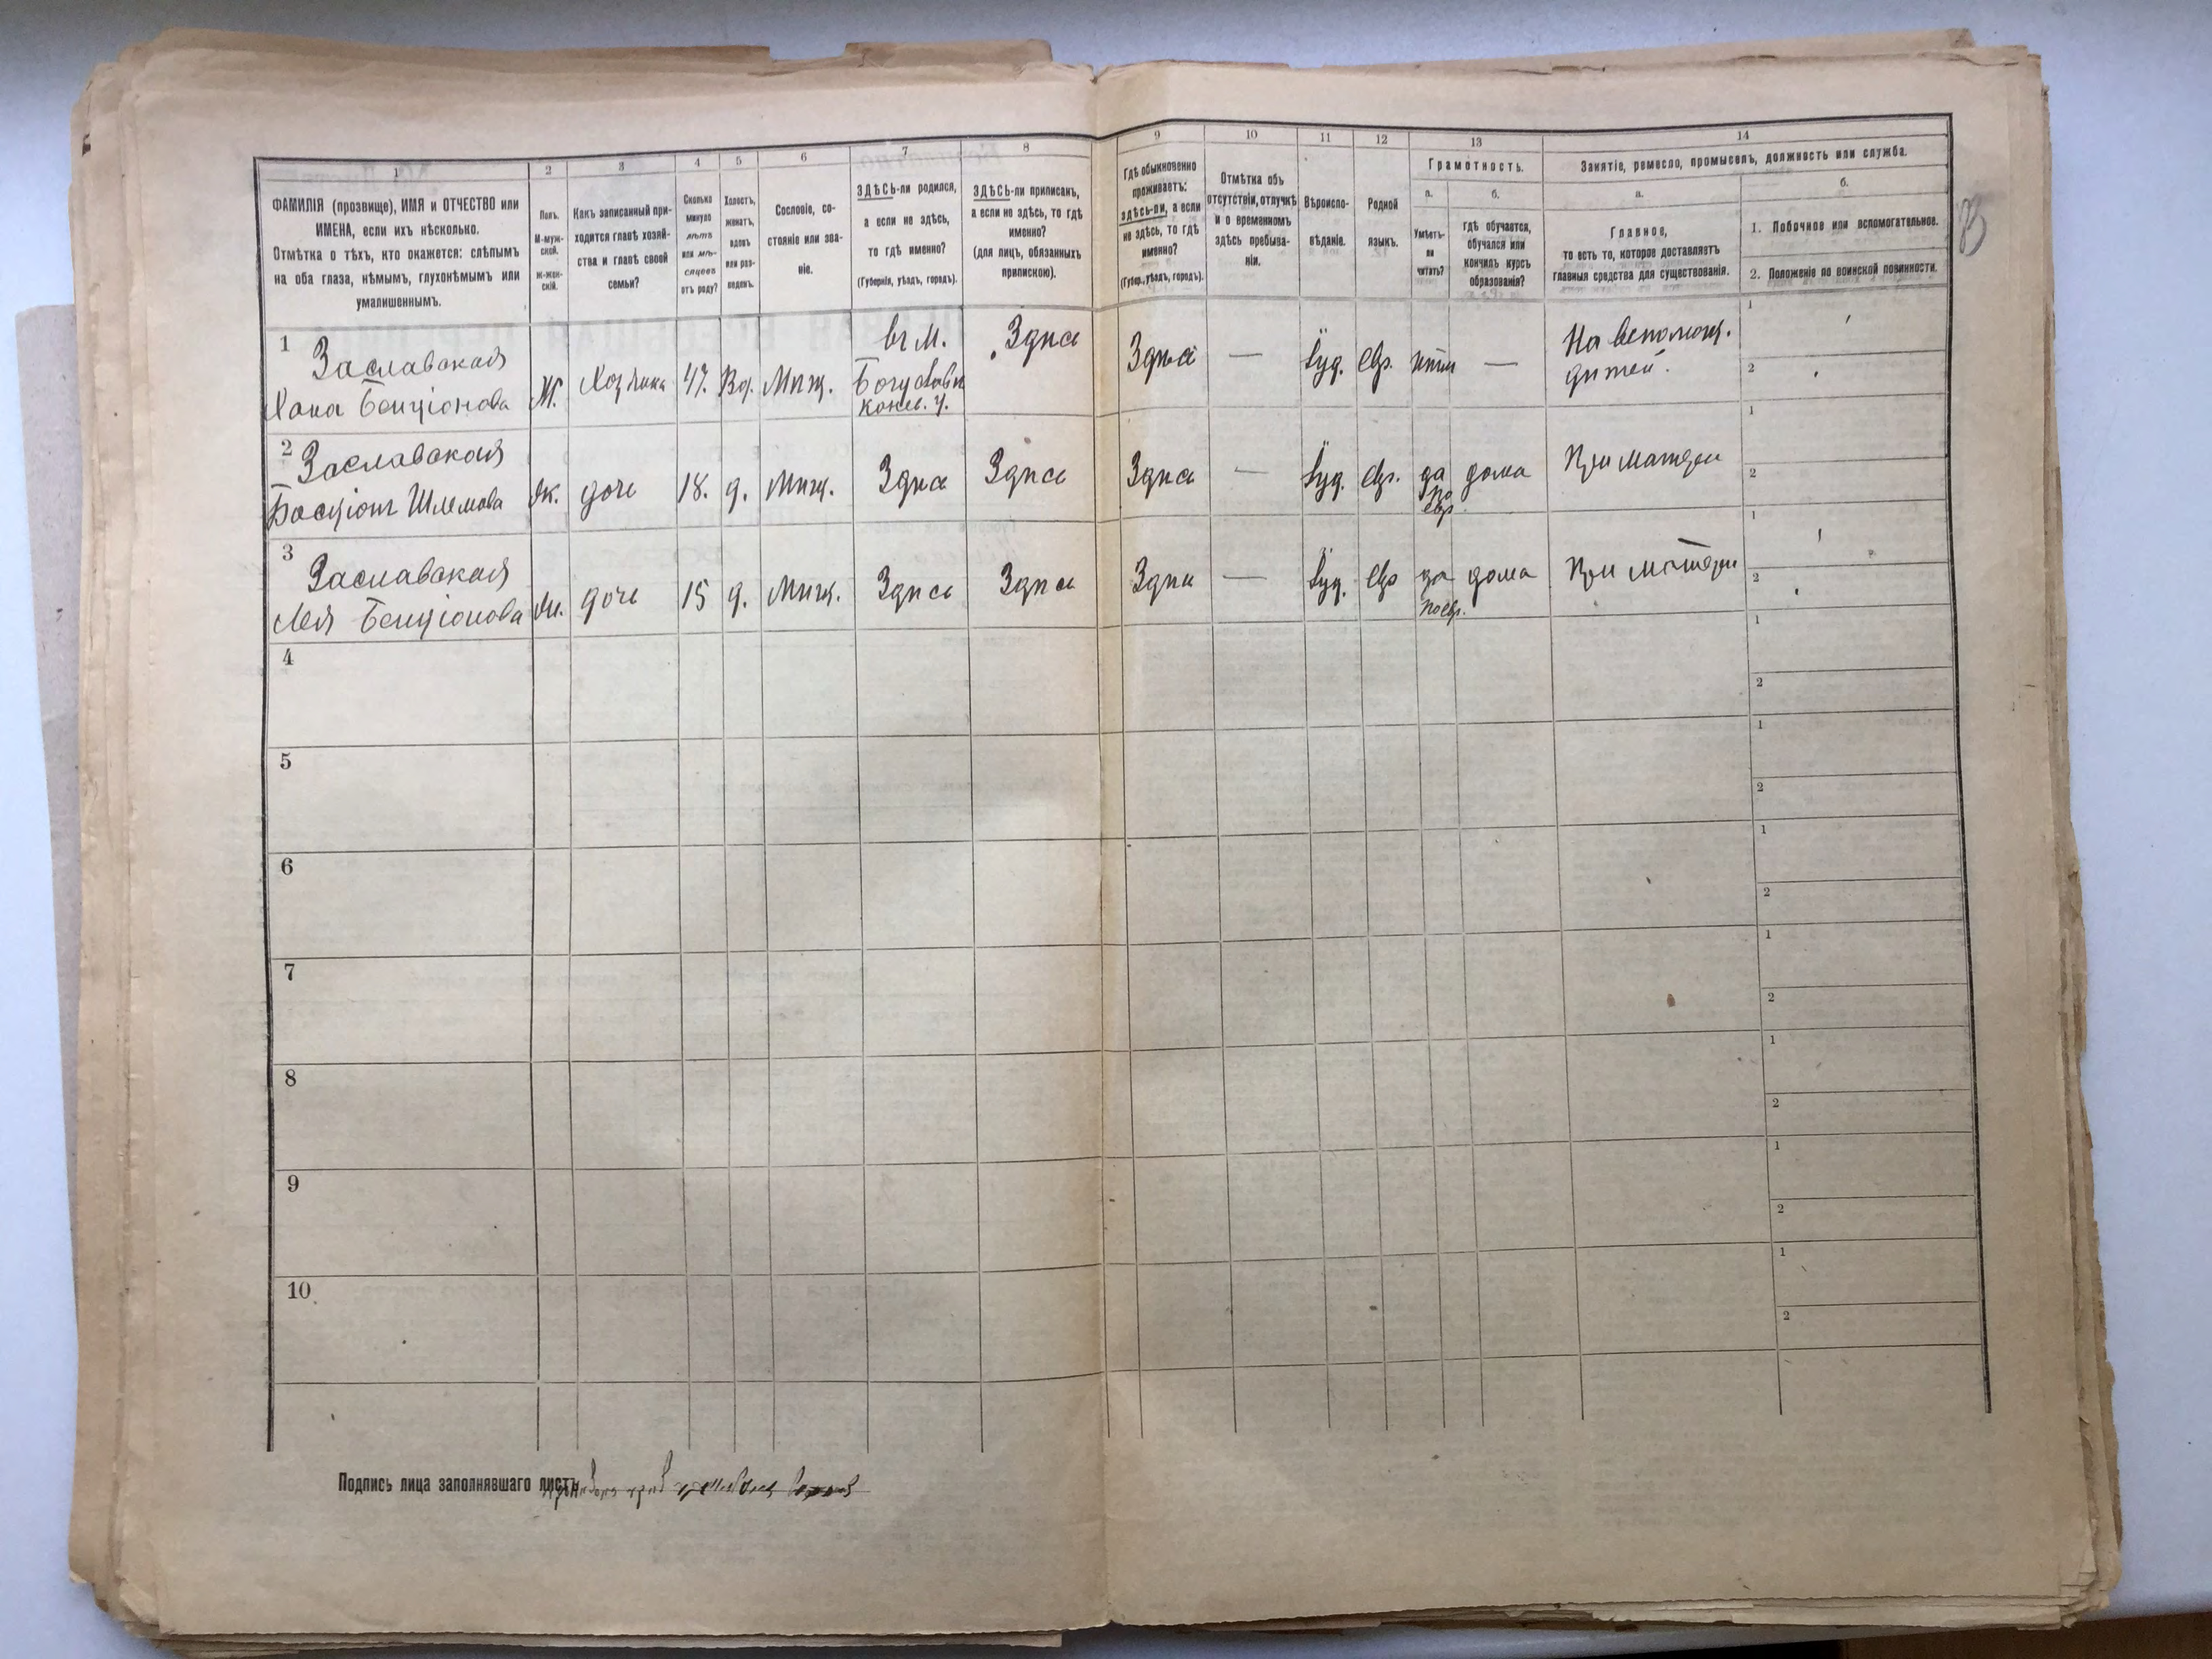 1
ФАМИЛІЯ (прозвище), ИМЯ и ОТЧЕСТВО или
ИМЕНА, если ихъ нѣсколько.
Отмѣтка о тѣхъ, кто окажется: слѣпымъ
на оба глаза, нѣмымъ, глухонѣмымъ или
умалишеннымъ.
2
Полъ.
М-муж-
ской.
Ж-жен-
скій.
3
Какъ записанный при-
ходится главѣ хозяй-
ства и главѣ своей
семьи?
4
Сколько
минуло
лѣтъ
или мѣ-
сяцевъ
отъ роду?
5
Холостъ,
женатъ,
вдовъ
или раз-
веденъ.
6
Сословіе, со-
стояніе или зва-
ніе.
7
ЗДѢСЬ-ли родился,
а если не здѣсь,
то гдѣ именно?
(Губернія, уѣздъ, городъ).
8
ЗДѢСЬ-ли приписанъ,
а если не здѣсь, то гдѣ
именно?
(для лицъ, обязанныхъ
припискою).
9
Гдѣ обыкновенно
проживаетъ:
здѣсь-ли, а если
не здѣсь, то гдѣ
именно?
(Губер., уѣздъ, городъ).
10
Отмѣтка объ
отсутствіи, отлучкѣ
и о временномъ
здѣсь пребыва-
ніи.
11
Вѣроиспо-
вѣданіе.
12
Родной
языкъ.
13
Грамотность.
а.
Умѣетъ-
ли
читать?
б.
гдѣ обучается,
обучался или
кончилъ курсъ
образованія?
14
Занятіе, ремесло, промыселъ, должность или служба.
а.
Главное,
то есть то, которое доставляетъ
главныя средства для существованія.
б.
1. Побочное или вспомогательное.
2. Положеніе по воинской повинности.
1
Заславская
Хана Бенціонова
Ж.
Хозяйка
47.
Вд.
Мѣщ.
въ М.
Богуславѣ
Канев. у.
Здѣсь
Здѣсь
—
Іуд.
евр.
нѣтъ
—
На вспомощ.
дѣтей.
1
2
2
Заславская
Басціонъ Шлемова
Ж.
дочь
18.
д.
Мѣщ.
Здѣсь
Здѣсь
Здѣсь
—
Іуд.
евр.
да
по
евр.
дома
При матери
1
2
3
Заславская
Лея Бенціонова
Ж.
дочь
15
д.
Мѣщ.
Здѣсь
Здѣсь
Здѣсь
—
Іуд.
евр
да
по евр.
дома
При матери
1
2
4
1
2
5
1
2
6
1
2
7
1
2
8
1
2
9
1
2
10
1
2
Подпись лица заполнявшаго листъ